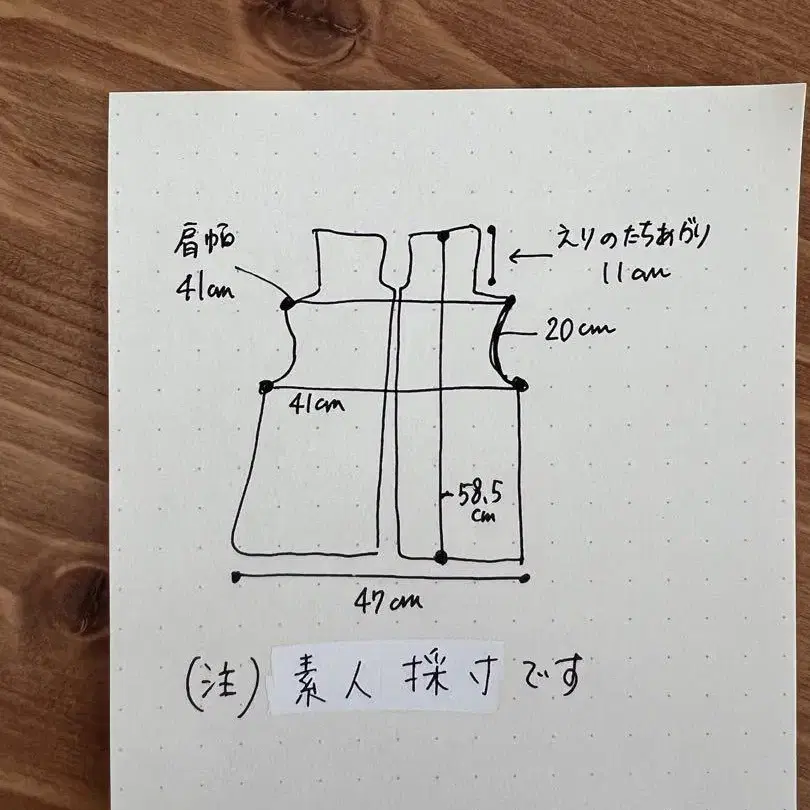 肩幅
41cm
えりのたちあがり
11cm
20cm
41cm
58.5
cm
47cm
(注) 素人採寸です